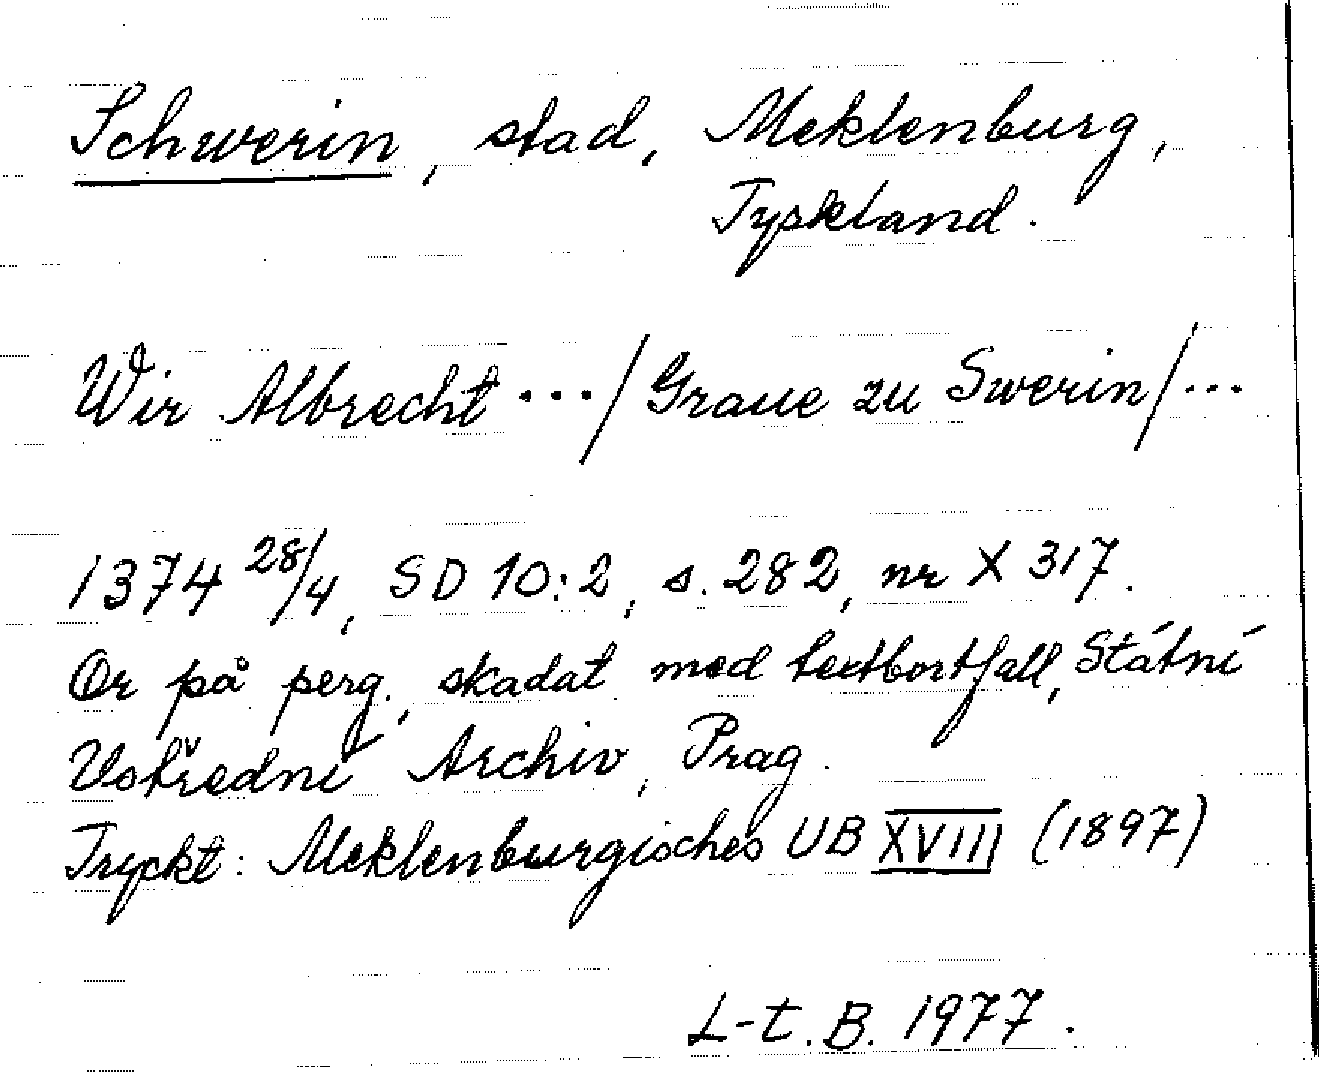 Schwerin, stad, Meklenburg,
Tyskland.
Wir Albrecht .../Graue zu Swerin/...
1374 28/4, SD 10:2, s. 282, nr X 317.
Or på perg., skadat med textbortfall, Státní
Ustředni Archiv, Prag.
Tryckt: Meklenburgisches UB XVIII (1897)
L-t. B. 1977.